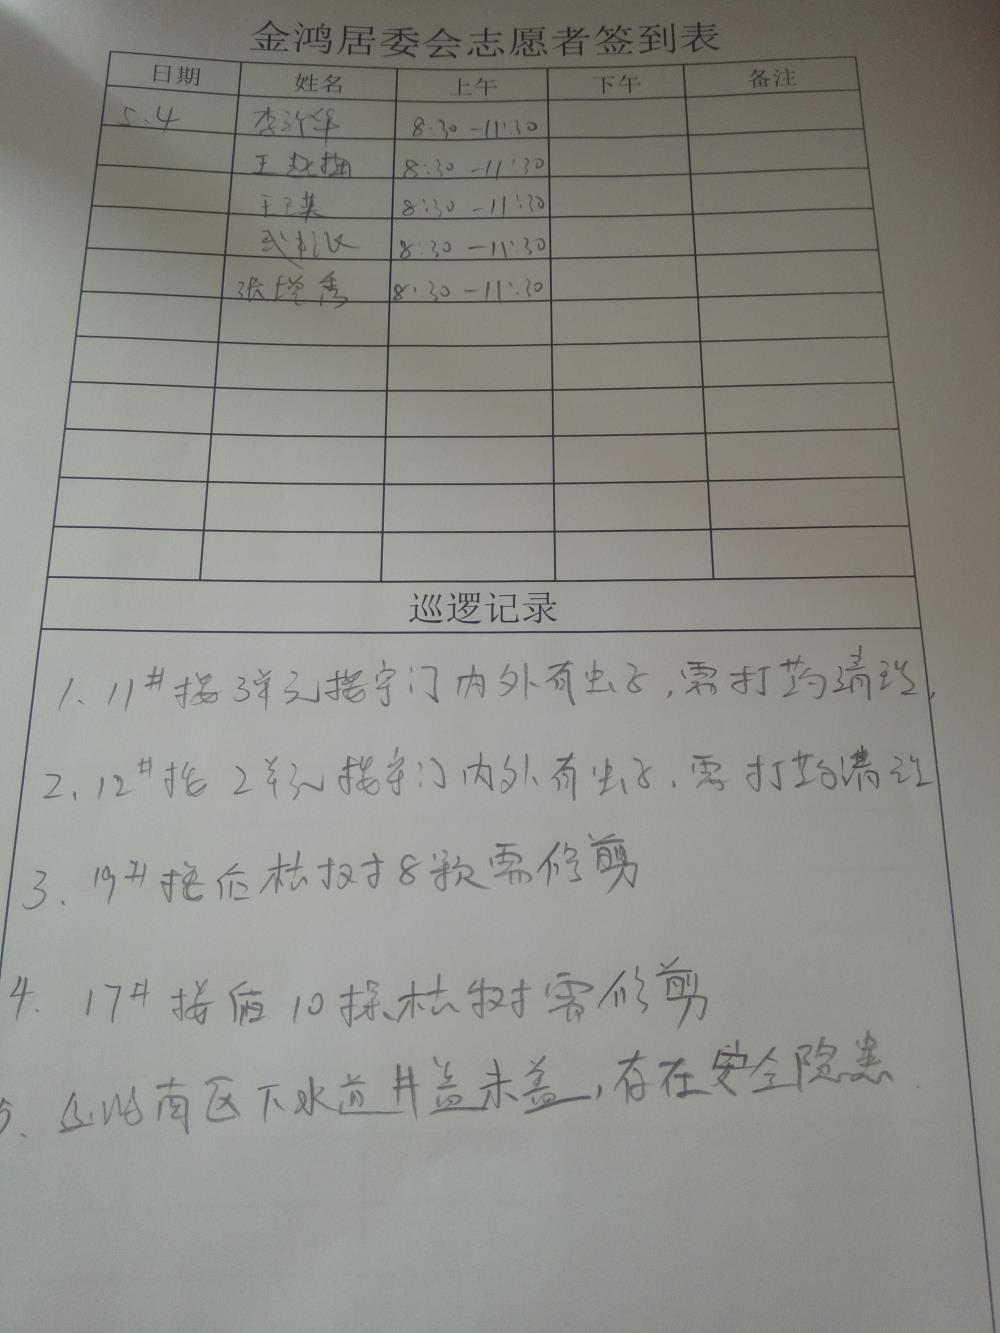 金鸿居委会志愿者签到表
日期 姓名 上午 下午 备注
5.4 李 华 8:30-11:30
王 梅 8:30-11:30
王 英 8:30-11:30
武 8:30-11:30
张增秀 8:30-11:30
巡逻记录
1. 11#楼3单元楼宇门内外有虫子,需打药清理,
2. 12#楼2单元楼宇门内外有虫子,需打药清理
3. 19#楼后枯树8颗需修剪
4. 17#楼值10棵枯树需修剪
5. 金鸿南区下水道井盖未盖,存在安全隐患.